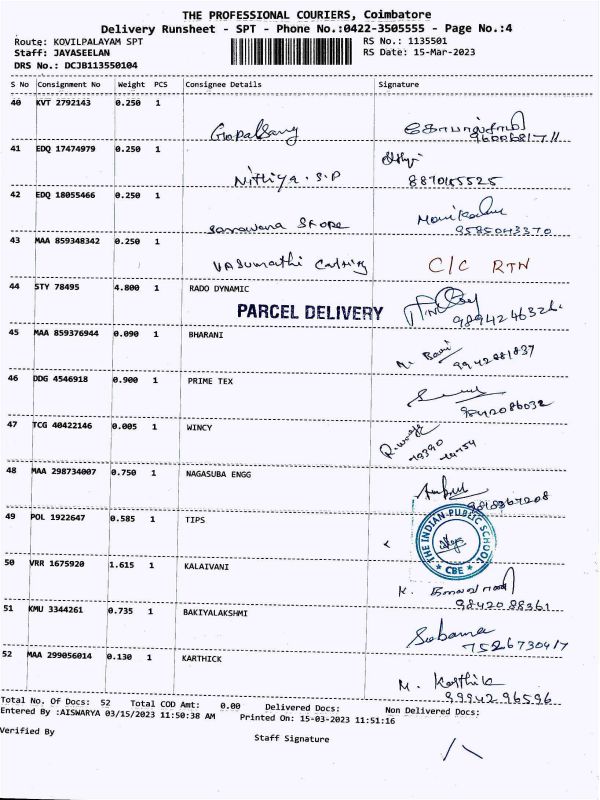 THE PROFESSIONAL COURIERS, Coimbatore
Delivery Runsheet - SPT - Phone No.:0422-3505555 - Page No.:4
Route: KOVILPALAYAM SPT RS No.: 1135501
Staff: JAYASEELAN RS Date: 15-Mar-2023
DRS No.: DCJB113550104
S No Consignment No Weight PCS Consignee Details Signature
40 KVT 2792143 0.250 1
Gopalsamy கோபால்சாமி
41 EDQ 17474979 0.250 1
Nithiya . S.P 8870145525
42 EDQ 18055466 0.250 1
Saravana Store 9585043370
43 MAA 859348342 0.250 1
Vasumathi C/C RTN
44 STY 78495 4.800 1 RADO DYNAMIC
PARCEL DELIVERY 9894246326.
45 MAA 859376944 0.090 1 BHARANI
9942081837
46 DDG 4546918 0.900 1 PRIME TEX
9842086032
47 TCG 40422146 0.005 1 WINCY
48 MAA 298734007 0.750 1 NAGASUBA ENGG
49 POL 1922647 0.585 1 TIPS
THE INDIAN PUBLIC SCHOOL
★ CBE ★
50 VRR 1675920 1.615 1 KALAIVANI
K. கலைவாணி
9842088361
51 KMU 3344261 0.735 1 BAKIYALAKSHMI
7526730417
52 MAA 299056014 0.130 1 KARTHICK
M. Karthik
9994296596
Total No. Of Docs: 52 Total COD Amt: 0.00 Delivered Docs: Non Delivered Docs:
Entered By :AISWARYA 03/15/2023 11:50:38 AM Printed On: 15-03-2023 11:51:16
Verified By
Staff Signature